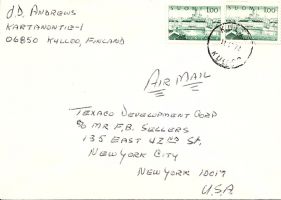 J.D. ANDREWS
KARTANONTIE-1
06850 KULLOO, FINLAND
SUOMI 1,00
SUOMI 1,00
KULLOO
AIR MAIL
TEXACO DEVELOPMENT CORP
% MR F.B. SELLERS
135 EAST 42ND St,
NEW YORK CITY
NEW YORK 10017
U.S.A.